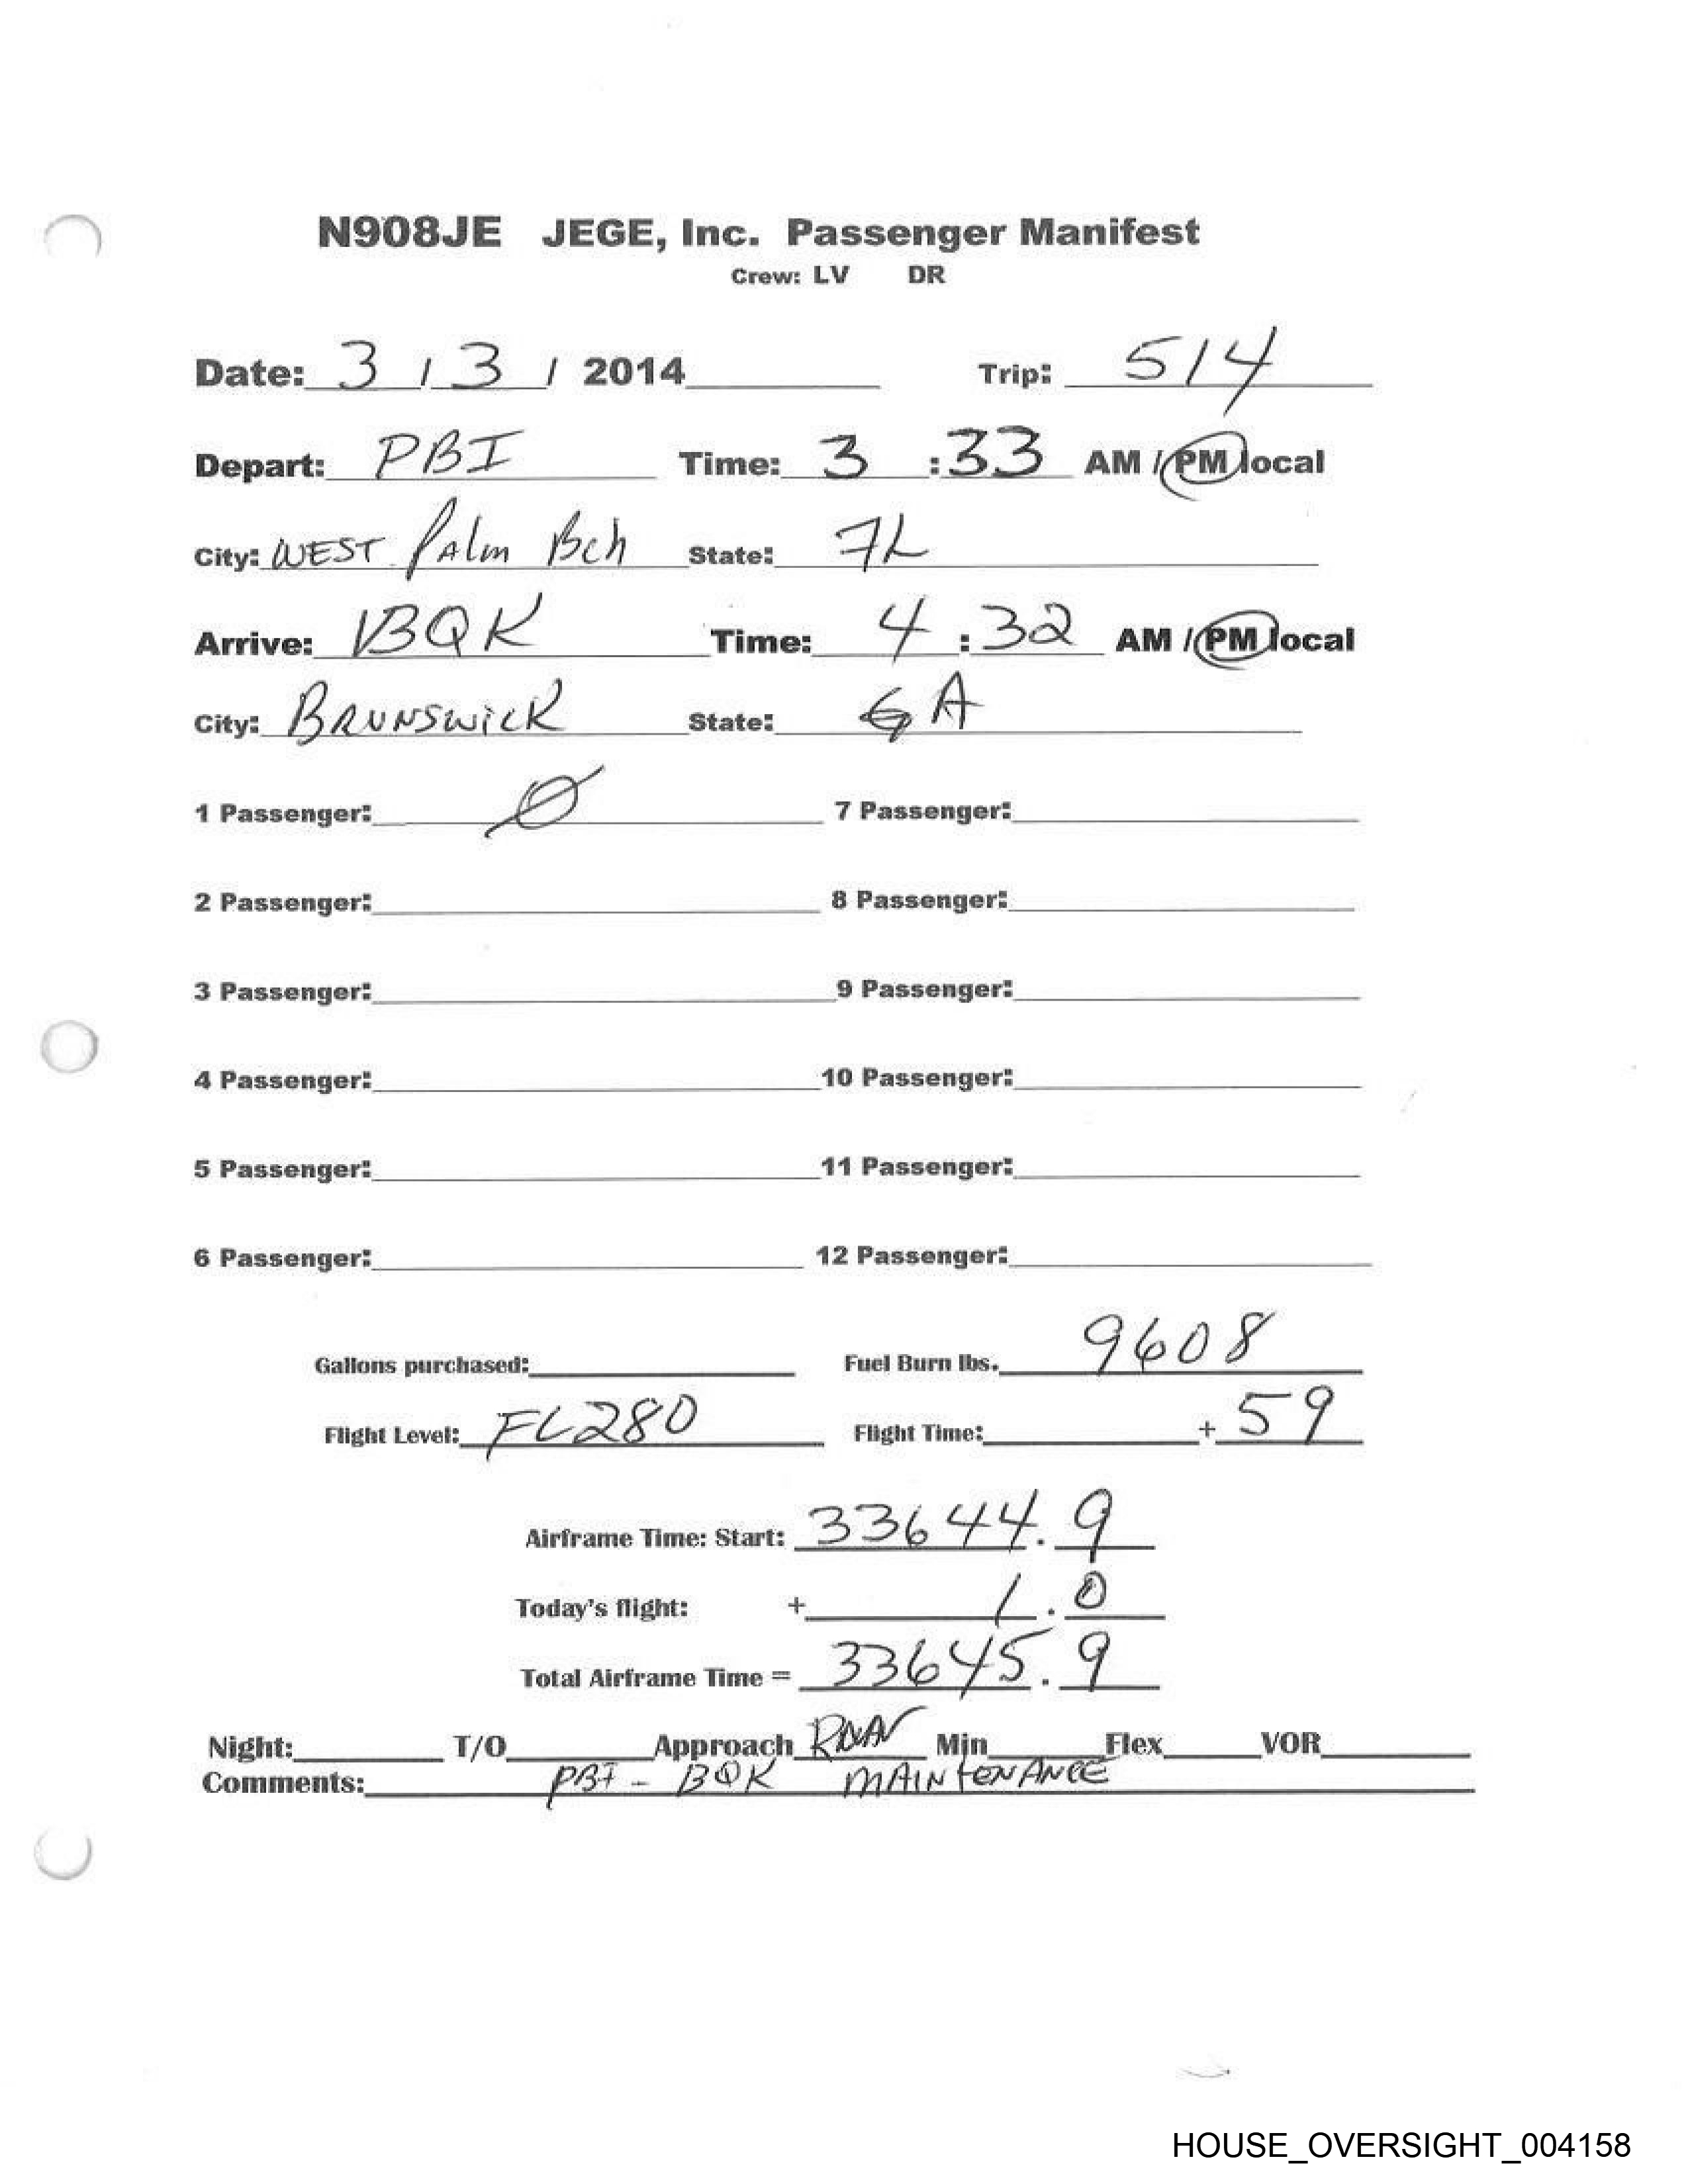 N908JE JEGE, Inc. Passenger Manifest
Crew: LV DR
Date: 3 / 3 / 2014 Trip: 514
Depart: PBI Time: 3 :33 AM / PM local
City: WEST Palm Bch State: FL
Arrive: BQK Time: 4 : 32 AM / PM local
City: BRUNSWICK State: GA
1 Passenger: Ø 7 Passenger:
2 Passenger: 8 Passenger:
3 Passenger: 9 Passenger:
4 Passenger: 10 Passenger:
5 Passenger: 11 Passenger:
6 Passenger: 12 Passenger:
Gallons purchased: Fuel Burn lbs. 9608
Flight Level: FL280 Flight Time: + 59
Airframe Time: Start: 33644.9
Today's flight: + 1.0
Total Airframe Time = 33645.9
Night: T/O Approach RNAV Min Flex VOR
Comments: PBI - BQK MAINTENANCE
HOUSE_OVERSIGHT_004158